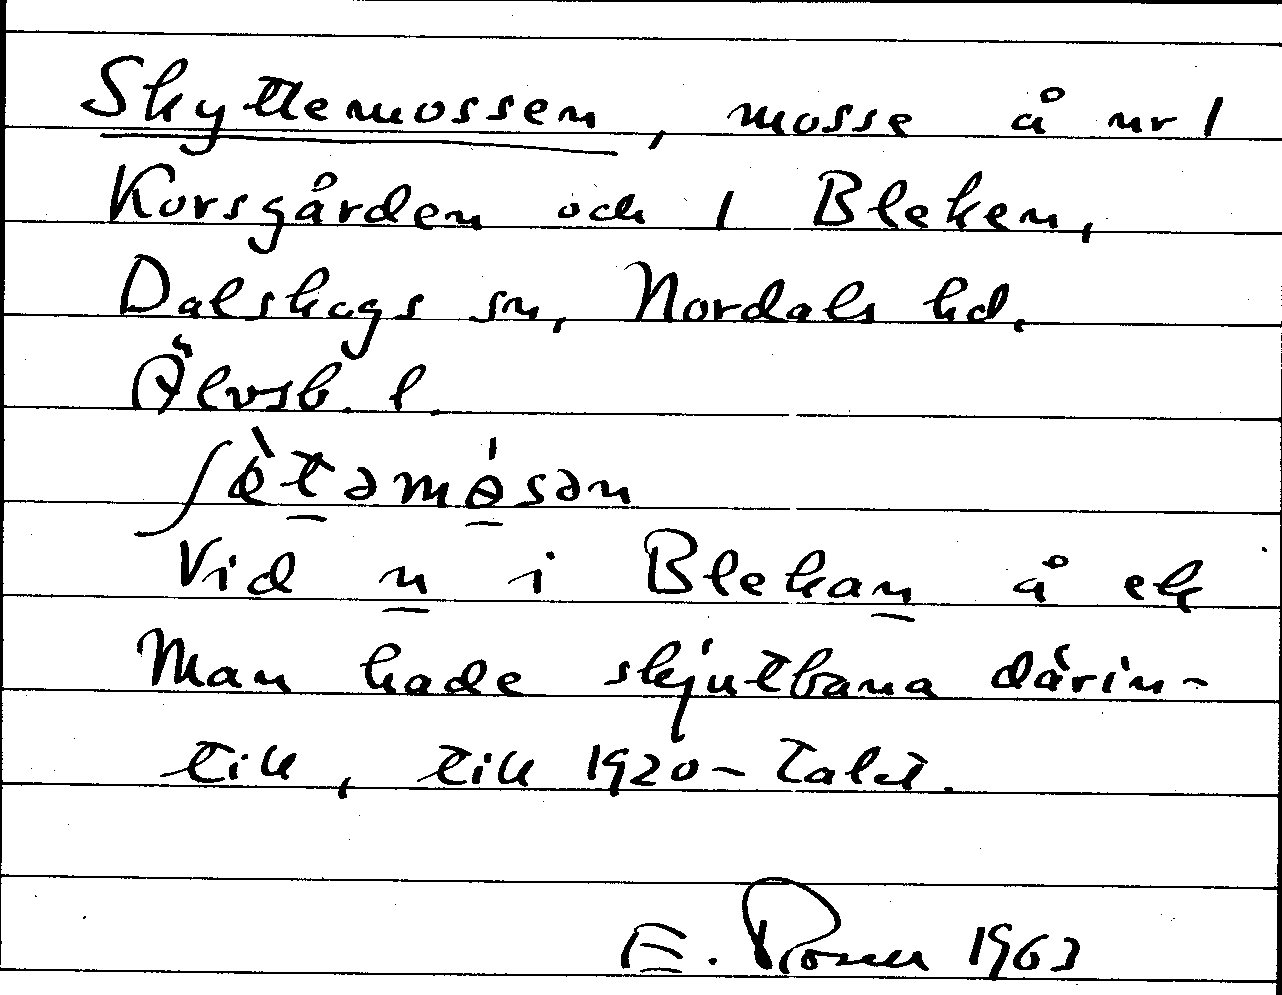 Skyttemossen, mosse å nr 1
Korsgården och 1 Bleken,
Dalskogs sn, Nordals hd.
Älvsb. l.
ʃɵ̀t̠əmɵ̠́sən
Vid n i Blekan å ek
Man hade skjutbana därin-
till, till 1920-talet.
E. Rosen 1963